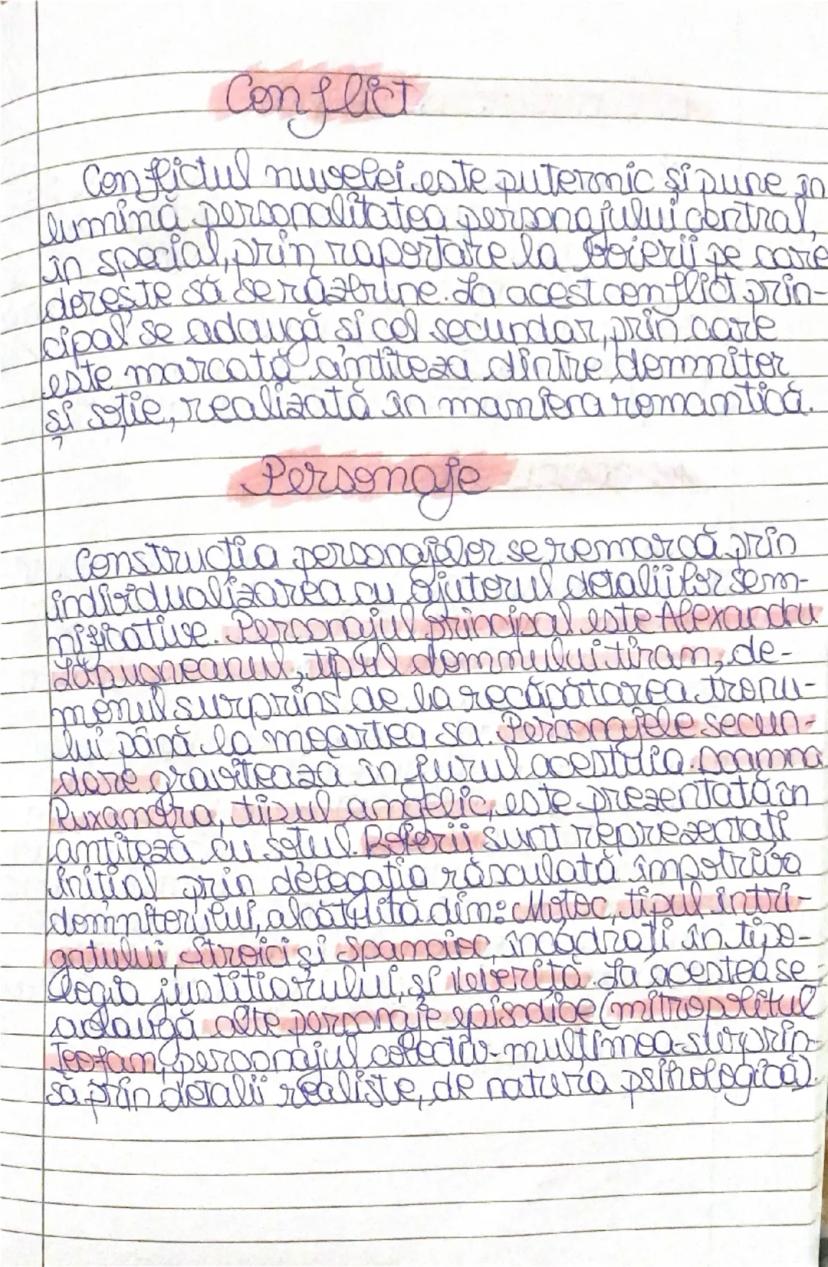 Conflict
Conflictul nuvelei este puternic și pune în
lumină personalitatea personajului central,
în special, prin raportare la boierii pe care
dorește să se răzbune. La acest conflict prin-
cipal se adaugă și cel secundar, prin care
este marcată antiteza dintre domnitor
și soție, realizată în maniera romantică.
Personaje
Construcția personajelor se remarcă prin
individualizarea cu ajutorul detaliilor sem-
nificative. Personajul principal este Alexandru
Lăpușneanul, tipul domnului tiran, de-
monul surprins de la recăpătarea tronu-
lui până la moartea sa. Personajele secun-
dare gravitează în jurul acestuia. Doamna
Ruxandra, tipul angelic, este prezentată în
antiteză cu soțul. Boierii sunt reprezentați
inițial prin delegația răsculată împotriva
domnitorului, alcătuită din: Moțoc, tipul intri-
gantului, Stroici și Spancioc, încadrați în tipo-
logia justițiarului, și Veveriță. La acestea se
adaugă alte personaje episodice (mitropolitul
Teofan, personajul colectiv-mulțimea-surprin-
să prin detalii realiste, de natura psihologică)